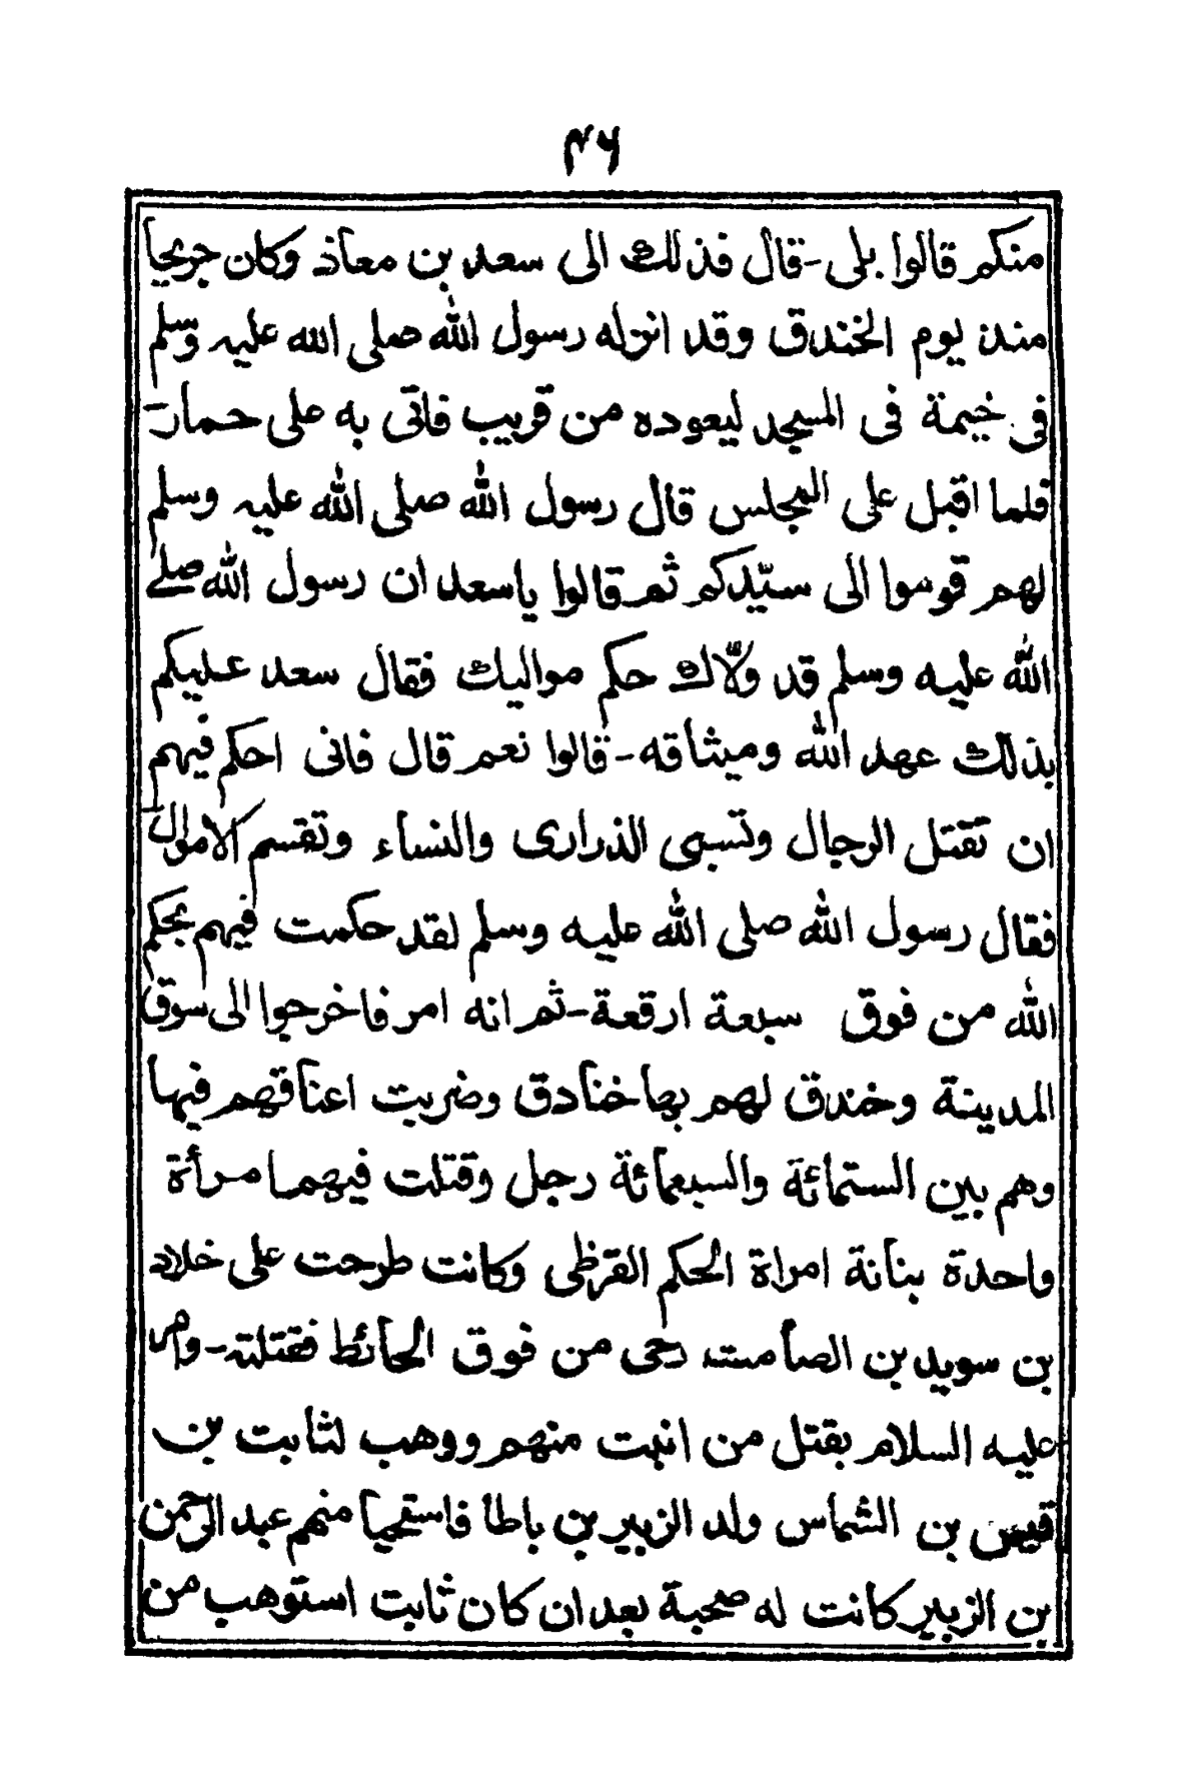 ۴۶
منكم قالوا بلى - قال فذلك الى سعد بن معاذ وكان جريحا
منذ يوم الخندق وقد انزله رسول الله صلى الله عليه وسلم
فى خيمة فى المسجد ليعوده من قريب فاتى به على حمار
فلما اقبل على المجلس قال رسول الله صلى الله عليه وسلم
لهم قوموا الى سيّدكم ثم قالوا ياسعد ان رسول الله صلى
الله عليه وسلم قد ولّاك حكم مواليك فقال سعد عليكم
بذلك عهد الله وميثاقه - قالوا نعم قال فانى احكم فيهم
ان تقتل الرجال وتسبى الذرارى والنساء وتقسم الاموال
فقال رسول الله صلى الله عليه وسلم لقد حكمت فيهم بحكم
الله من فوق سبعة ارقعة - ثم انه امر فاخرجوا الى سوق
المدينة وخندق لهم بها خنادق وضربت اعناقهم فيها
وهم بين الستمائة والسبعمائة رجل وقتلت فيهم امرأة
واحدة بنانة امراة الحكم القرظى وكانت طرحت على خلاد
بن سويد بن الصامت رحى من فوق الحائط فقتلته - وامر
عليه السلام بقتل من انبت منهم ووهب لثابت بن
قيس بن الشماس ولد الزبير بن باطا فاستحيا منهم عبد الرحمن
بن الزبير كانت له صحبة بعد ان كان ثابت استوهب من